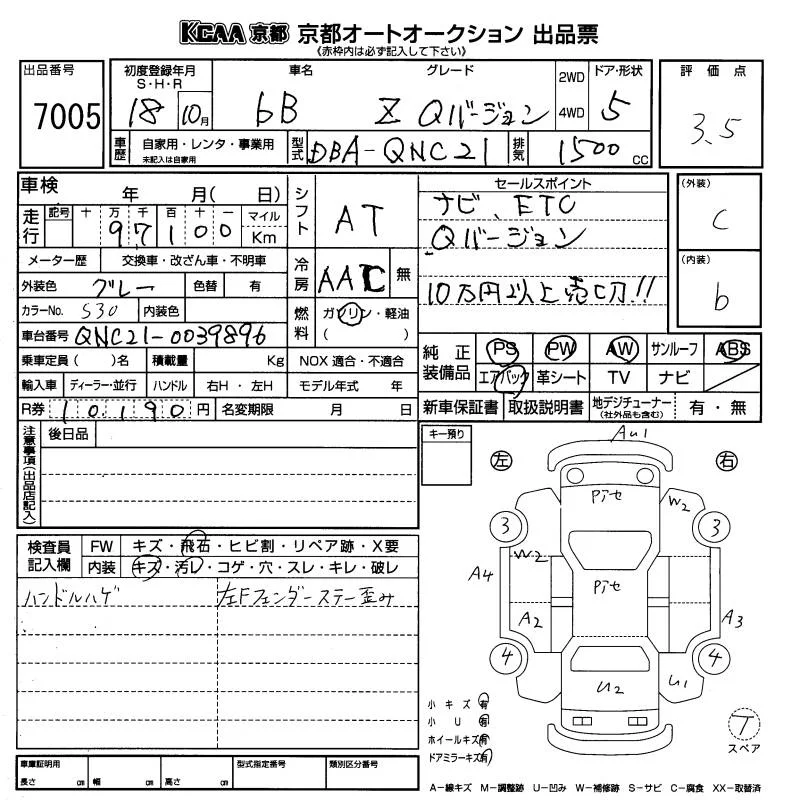 KCAA 京都 京都オートオークション 出品票
《赤枠内は必ず記入して下さい》
出品番号 7005
初度登録年月 S・H・R 18 10月
車名 bB
グレード Z Qバージョン
2WD 4WD
ドア・形状 5
評価点 3.5
車歴 自家用・レンタ・事業用 未記入は自家用
型式 DBA-QNC21
排気 1500 CC
車検 年 月( 日)
シフト AT
セールスポイント
ナビ、ETC
Qバージョン
10万円以上売切!!
(外装) C
(内装) b
走行 記号 十 万 千 百 十 一 マイル Km
9 7 1 0 0
メーター歴 交換車・改ざん車・不明車
冷房 AAC 無
外装色 グレー 色替 有
カラーNo. S30 内装色
燃料 ガソリン・軽油 ( )
車台番号 QNC21-0039896
乗車定員 ( )名 積載量 Kg NOX 適合・不適合
輸入車 ディーラー・並行 ハンドル 右H・左H モデル年式 年
R券 10,190 円 名変期限 月 日
純正装備品 PS PW AW サンルーフ ABS
エアバック 革シート TV ナビ
新車保証書 取扱説明書 地デジチューナー (社外品も含む) 有・無
注意事項(出品店記入) 後日品
キー預り
左 右
Au1
Pアセ
W2
3 3
W2
A4
Pアセ
A2
A3
4 4
U2
U1
検査員記入欄 FW キズ・飛石・ヒビ割・リペア跡・X要
内装 キズ・汚レ・コゲ・穴・スレ・キレ・破レ
ハンドルハゲ 左Fフェンダーステー歪み
小キズ 有
小U 有
ホイールキズ 有
ドアミラーキズ 有
T スペア
車庫証明用 長さ cm 幅 cm 高さ cm
型式指定番号 類別区分番号
A-線キズ M-調整跡 U-凹み W-補修跡 S-サビ C-腐食 XX-取替済